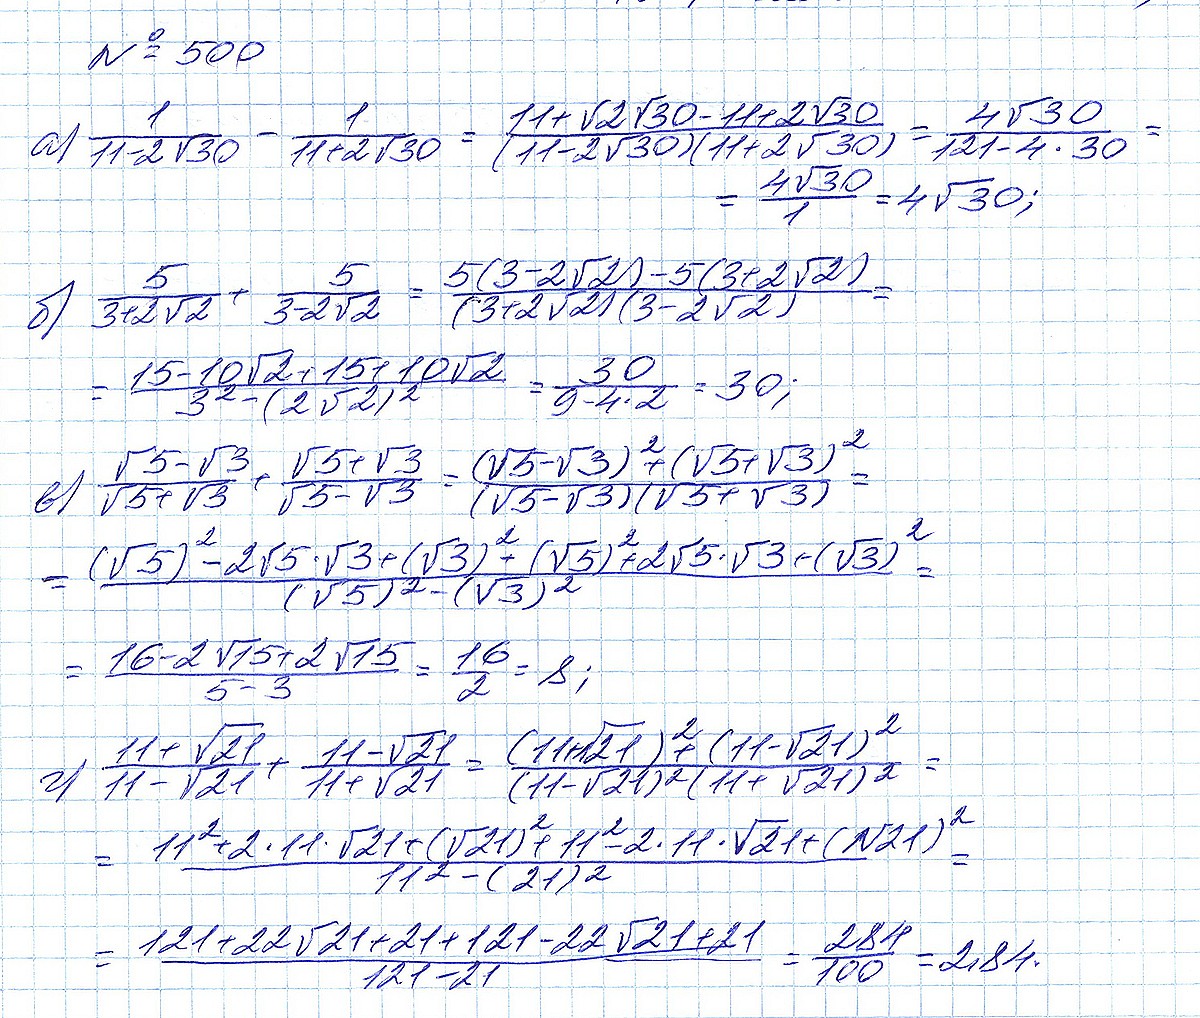 № 500
а) 1/(11-2√30) - 1/(11+2√30) = (11+√2√30-11+2√30)/((11-2√30)(11+2√30)) = 4√30/(121-4·30) =
= 4√30/1 = 4√30;
б) 5/(3+2√2) + 5/(3-2√2) = (5(3-2√2)-5(3+2√2))/((3+2√2)(3-2√2)) =
= (15-10√2+15+10√2)/(3²-(2√2)²) = 30/(9-4·2) = 30;
в) (√5-√3)/(√5+√3) + (√5+√3)/(√5-√3) = ((√5-√3)²+(√5+√3)²)/((√5-√3)(√5+√3)) =
= ((√5)²-2√5·√3+(√3)²+(√5)²+2√5·√3+(√3)²)/((√5)²-(√3)²) =
= (16-2√15+2√15)/(5-3) = 16/2 = 8;
г) (11+√21)/(11-√21) + (11-√21)/(11+√21) = ((11+√21)²+(11-√21)²)/((11-√21)²(11+√21)²) =
= (11²+2·11·√21+(√21)²+11²-2·11·√21+(√21)²)/(11²-(21)²) =
= (121+22√21+21+121-22√21+21)/(121-21) = 284/100 = 2,84.